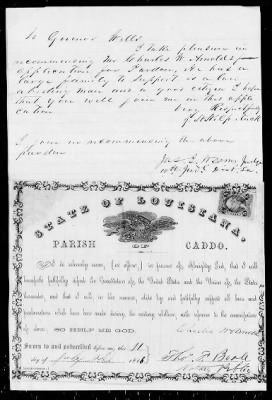 To Governor Wells
I take pleasure in
recommending Mr Charles W. Arnolds
application for Pardon, He has a
large family to support is a law
abiding man and a good citizen I hope
that you will join me in this appli
cation Very Respectfully
I join in recommending the above
pardon
STATE OF LOUISIANA,
PARISH OF CADDO.
I do solemnly swear, (or affirm,) in presence of Almighty God, that I will
henceforth faithfully defend the Constitution of the United States and the Union of the States
thereunder, and that I will, in like manner, abide by and faithfully support all laws and
proclamations which have been made during the existing rebellion, with reference to the emancipation
of slaves, SO HELP ME GOD.
Sworn to and subscribed before me, this 11
day of